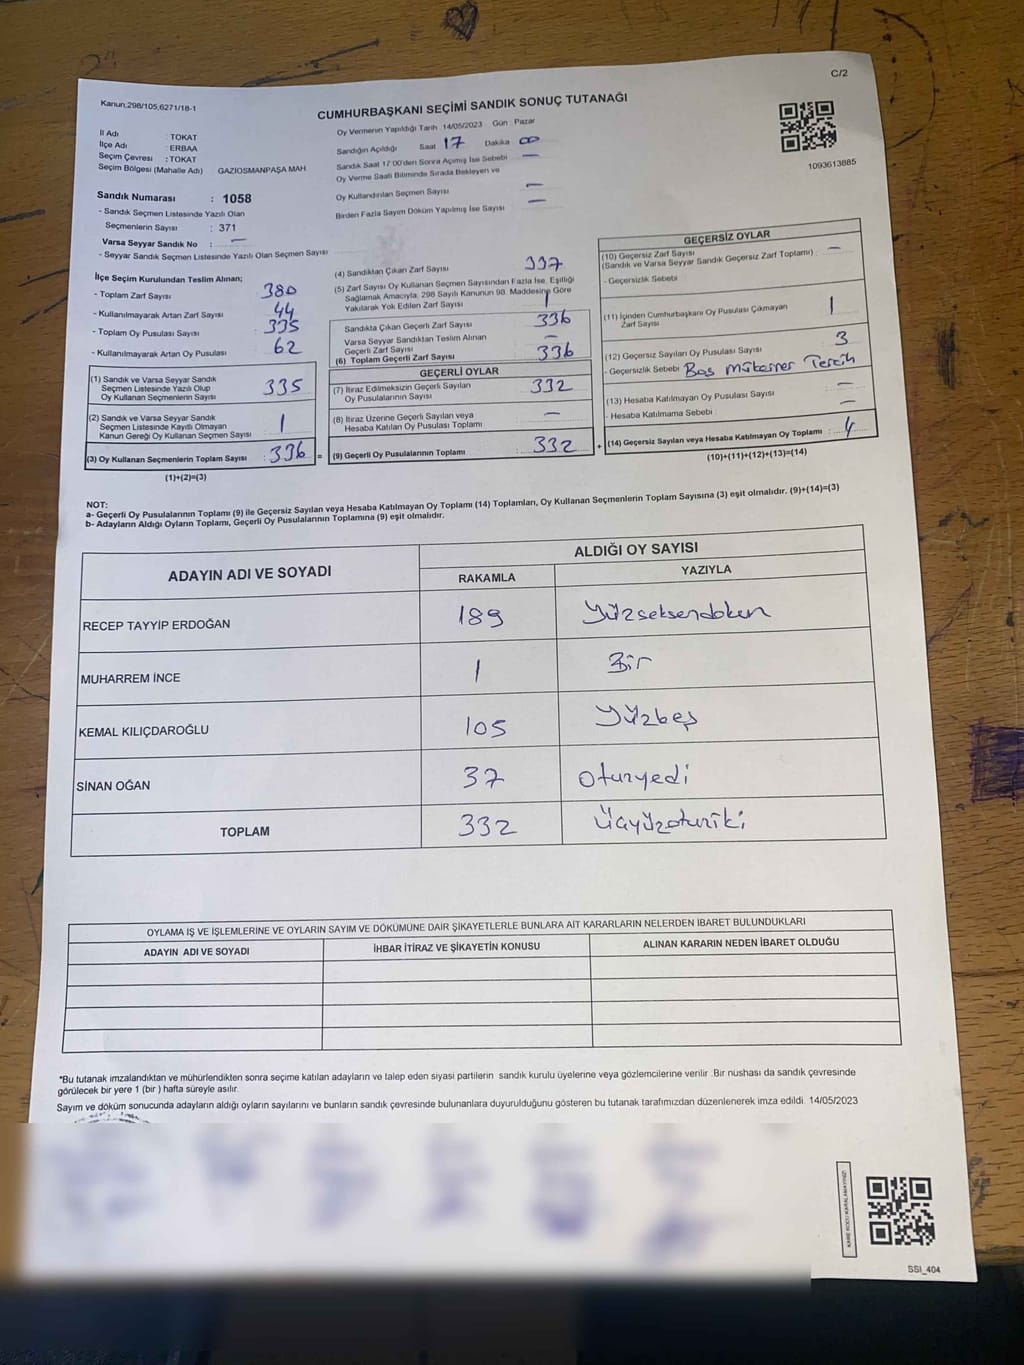 C/2
Kanun;298/105,6271/18-1
CUMHURBAŞKANI SEÇİMİ SANDIK SONUÇ TUTANAĞI
İl Adı : TOKAT
İlçe Adı : ERBAA
Seçim Çevresi : TOKAT
Seçim Bölgesi (Mahalle Adı) GAZİOSMANPAŞA MAH.
Oy Vermenin Yapıldığı Tarih 14/05/2023 Gün : Pazar
Sandığın Açıldığı Saat 17 Dakika 00
Sandık Saat 17:00'den Sonra Açımış İse Sebebi —
Oy Verme Saati Bitiminde Sırada Bekleyen ve
Oy Kullandırılan Seçmen Sayısı —
Birden Fazla Sayım Döküm Yapılmış İse Sayısı —
1093613885
Sandık Numarası : 1058
- Sandık Seçmen Listesinde Yazılı Olan
Seçmenlerin Sayısı : 371
Varsa Seyyar Sandık No : —
- Seyyar Sandık Seçmen Listesinde Yazılı Olan Seçmen Sayısı
İlçe Seçim Kurulundan Teslim Alınan;
- Toplam Zarf Sayısı : 380
- Kullanılmayarak Artan Zarf Sayısı : 44
- Toplam Oy Pusulası Sayısı : 335
- Kullanılmayarak Artan Oy Pusulası : 62
(1) Sandık ve Varsa Seyyar Sandık
Seçmen Listesinde Yazılı Olup
Oy Kullanan Seçmenlerin Sayısı : 335
(2) Sandık ve Varsa Seyyar Sandık
Seçmen Listesinde Kayıtlı Olmayan
Kanun Gereği Oy Kullanan Seçmen Sayısı : 1
(3) Oy Kullanan Seçmenlerin Toplam Sayısı : 336 =
(1)+(2)=(3)
(4) Sandıktan Çıkan Zarf Sayısı : 337
(5) Zarf Sayısı Oy Kullanan Seçmen Sayısından Fazla İse, Eşitliği
Sağlamak Amacıyla, 298 Sayılı Kanunun 98. Maddesine Göre
Yakılarak Yok Edilen Zarf Sayısı : 1
Sandıkta Çıkan Geçerli Zarf Sayısı : 336
Varsa Seyyar Sandıktan Teslim Alınan
Geçerli Zarf Sayısı : —
(6) Toplam Geçerli Zarf Sayısı : 336
GEÇERLİ OYLAR
(7) İtiraz Edilmeksizin Geçerli Sayılan
Oy Pusulasının Sayısı : 332
(8) İtiraz Üzerine Geçerli Sayılan veya
Hesaba Katılan Oy Pusulası Toplamı : —
(9) Geçerli Oy Pusulalarının Toplamı : 332 +
GEÇERSİZ OYLAR
(10) Geçersiz Zarf Sayısı
(Sandık ve Varsa Seyyar Sandık Geçersiz Zarf Toplamı) : —
- Geçersizlik Sebebi :
(11) İçinden Cumhurbaşkanı Oy Pusulası Çıkmayan
Zarf Sayısı : 1
(12) Geçersiz Sayılan Oy Pusulası Sayısı : 3
- Geçersizlik Sebebi : Boş Mükerrer Tercih
(13) Hesaba Katılmayan Oy Pusulası Sayısı : —
- Hesaba Katılmama Sebebi : —
(14) Geçersiz Sayılan veya Hesaba Katılmayan Oy Toplamı : 4
(10)+(11)+(12)+(13)=(14)
NOT:
a- Geçerli Oy Pusulalarının Toplamı (9) ile Geçersiz Sayılan veya Hesaba Katılmayan Oy Toplamı (14) Toplamları, Oy Kullanan Seçmenlerin Toplam Sayısına (3) eşit olmalıdır. (9)+(14)=(3)
b- Adayların Aldığı Oyların Toplamı, Geçerli Oy Pusulalarının Toplamına (9) eşit olmalıdır.
ADAYIN ADI VE SOYADI
ALDIĞI OY SAYISI
RAKAMLA YAZIYLA
RECEP TAYYİP ERDOĞAN 189 Yüzseksendokuz
MUHARREM İNCE 1 Bir
KEMAL KILIÇDAROĞLU 105 Yüzbeş
SİNAN OĞAN 37 Otuzyedi
TOPLAM 332 Üçyüzotuziki
OYLAMA İŞ VE İŞLEMLERİNE VE OYLARIN SAYIM VE DÖKÜMÜNE DAİR ŞİKAYETLERLE BUNLARA AİT KARARLARIN NELERDEN İBARET BULUNDUKLARI
ADAYIN ADI VE SOYADI İHBAR İTİRAZ VE ŞİKAYETİN KONUSU ALINAN KARARIN NEDEN İBARET OLDUĞU
*Bu tutanak imzalandıktan ve mühürlendikten sonra seçime katılan adayların ve talep eden siyasi partilerin sandık kurulu üyelerine veya gözlemcilerine verilir .Bir nüshası da sandık çevresinde
görülecek bir yere 1 (bir ) hafta süreyle asılır.
Sayım ve döküm sonucunda adayların aldığı oyların sayılarını ve bunların sandık çevresinde bulunanlara duyurulduğunu gösteren bu tutanak tarafımızdan düzenlenerek imza edildi. 14/05/2023
KARE KODU KARALAMAYINIZ!
SSI_404